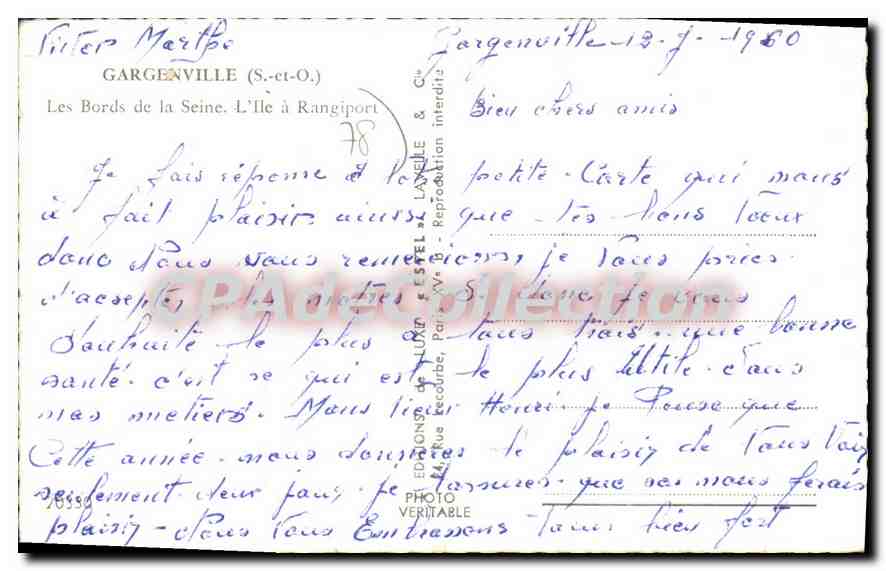 Victor Marthe
Gargenville 12-1-1960
GARGENVILLE (S.-et-O.)
Les Bords de la Seine. L'Ile à Rangiport
78
Bien chers amis
Je fais réponse à ta petite Carte qui nous
à fait plaisir ainsi que tes bons Voeux
donc Nous vous remercions, je vous pries
d'accepter les notres donc je vous
Souhaite le plus a tous trois que bonne
santé c'est se qui est le plus Utile dans
nos metiers. Mons vieux Henri je Pense que
Cette année nous donneras le plaisir de Vous Voir
seulement deux jours je t'assures que sa nous ferais
plaisir Nous Vous Embrassons Tous bien fort
20330
EDITIONS de LUXE « ESTEL » LAVELLE & Cie
84, Rue Lecourbe, Paris XVe - Reproduction interdite
PHOTO
VERITABLE
CPAdeCollection